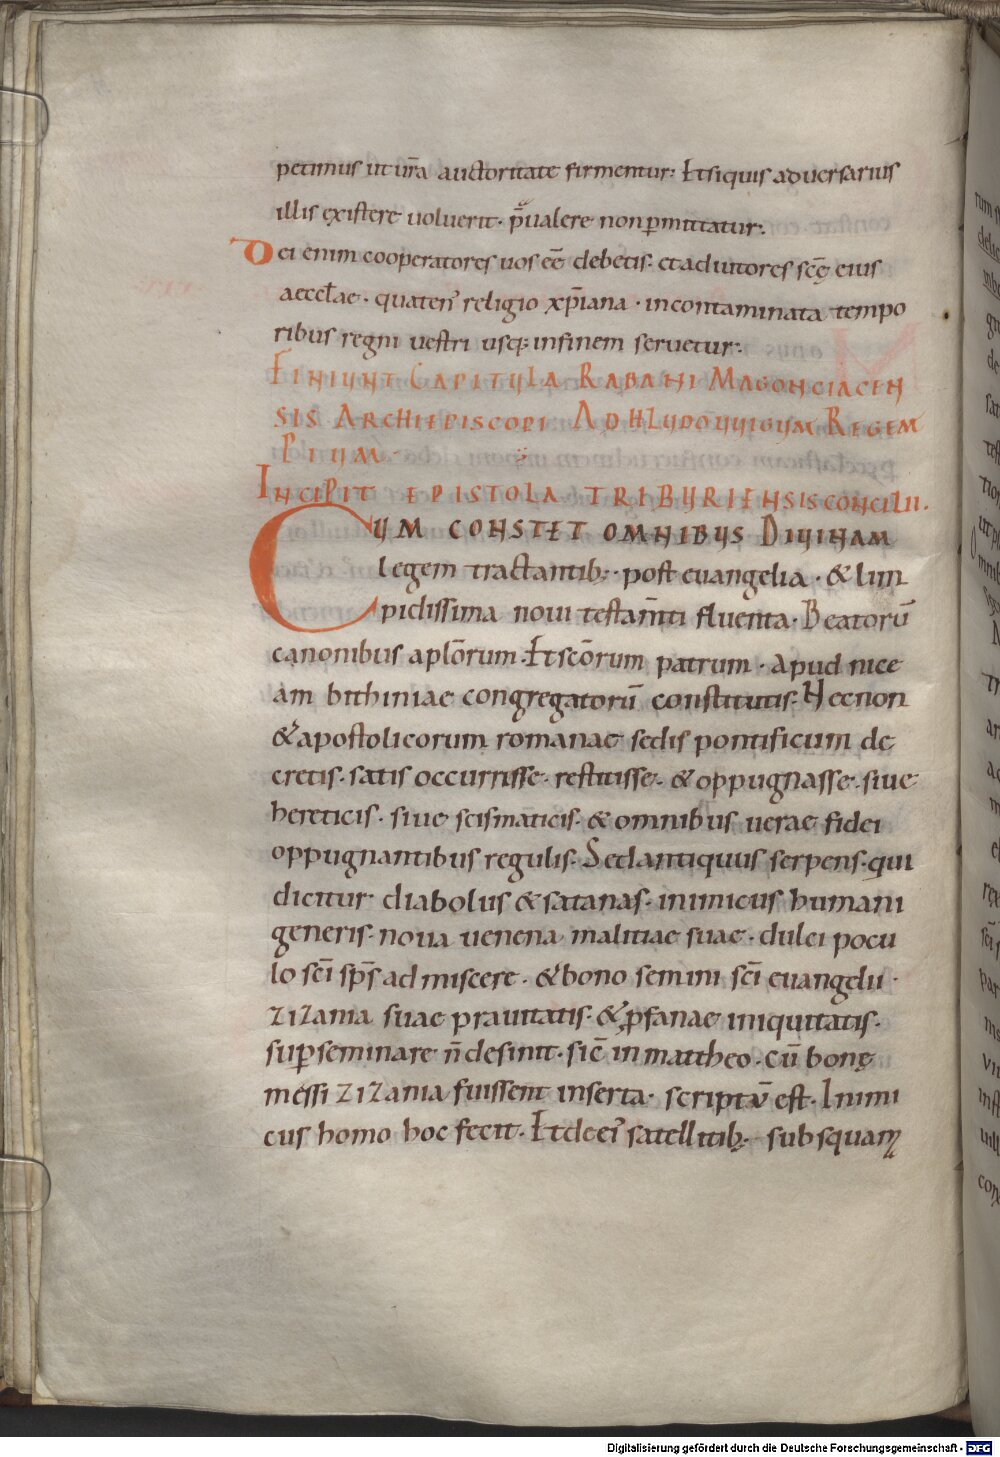 petimus ut ur̄a auctoritate firmentur; Et siquis aduersarius
illis existere uoluerit· p̄ualere non ꝑmittatur;
Dei enim cooperatores uos eē debetis· et adiutores scę̄ eius
aeccl̄ae· quaten᾽ religio xp̄iana· incontaminata tempo
ribus regni uestri usq; in finem seruetur;
FINIUNT CAPITULA RABANI MAGONCIACEN
SIS ARCHIEPISCOPI AD HLUDOUUIGUM REGEM
PIUM·
INCIPIT EPISTOLA TRIBURIENSIS CONCILII·
CUM CONSTET OMNIBUS DIUINAM
legem tractantib;· post euangelia· & lim
pidissima noui testam̄ti fluenta· Beatorū
canonibus aplōrum· Et scōrum patrum· apud nice
am bithiniae congregatorū constitutis· Necnon
& apostolicorum romanae sedis pontificum de
cretis· satis occurrisse· restitisse· & oppugnasse· siue
hereticis· siue scismāticis· & omnibus uerae fidei
oppugnantibus regulis· Sed antiquus serpens· qui
dicitur diabolus & satanas· inimicus humani
generis· noua uenena malitiae suae· dulci pocu
lo scī sp̄s admiscere· & bono semini scī euangelii·
zizania suae prauitatis· & ꝓfanae iniquitatis·
suꝑseminare n̄ desinit· sic̄ in mattheo· cū bonę
messi zizania fuissent inserta· scriptū est· Inimi
cus homo hoc fecit· Et de ei᾽ satellitib;· sub squamꝫ
Digitalisierung gefördert durch die Deutsche Forschungsgemeinschaft - DFG